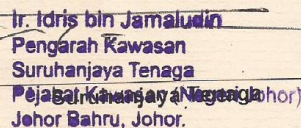 Ir. Idris bin Jamaludin
Pengarah Kawasan
Suruhanjaya Tenaga
Pejabat Kawasan (Negeri Johor)
Suruhanjaya Tenaga
Johor Bahru, Johor.